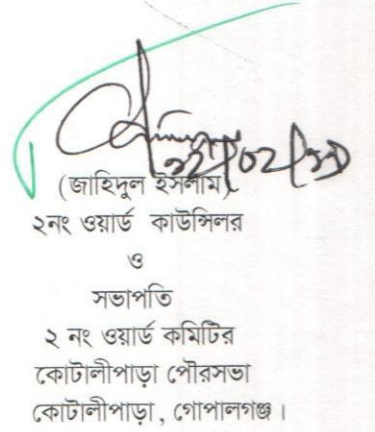 (জাহিদুল ইসলাম)
২নং ওয়ার্ড কাউন্সিলর
ও
সভাপতি
২ নং ওয়ার্ড কমিটির
কোটালীপাড়া পৌরসভা
কোটালীপাড়া, গোপালগঞ্জ।